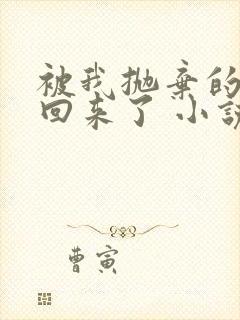 被我抛弃的
回来了 小说
曹寅